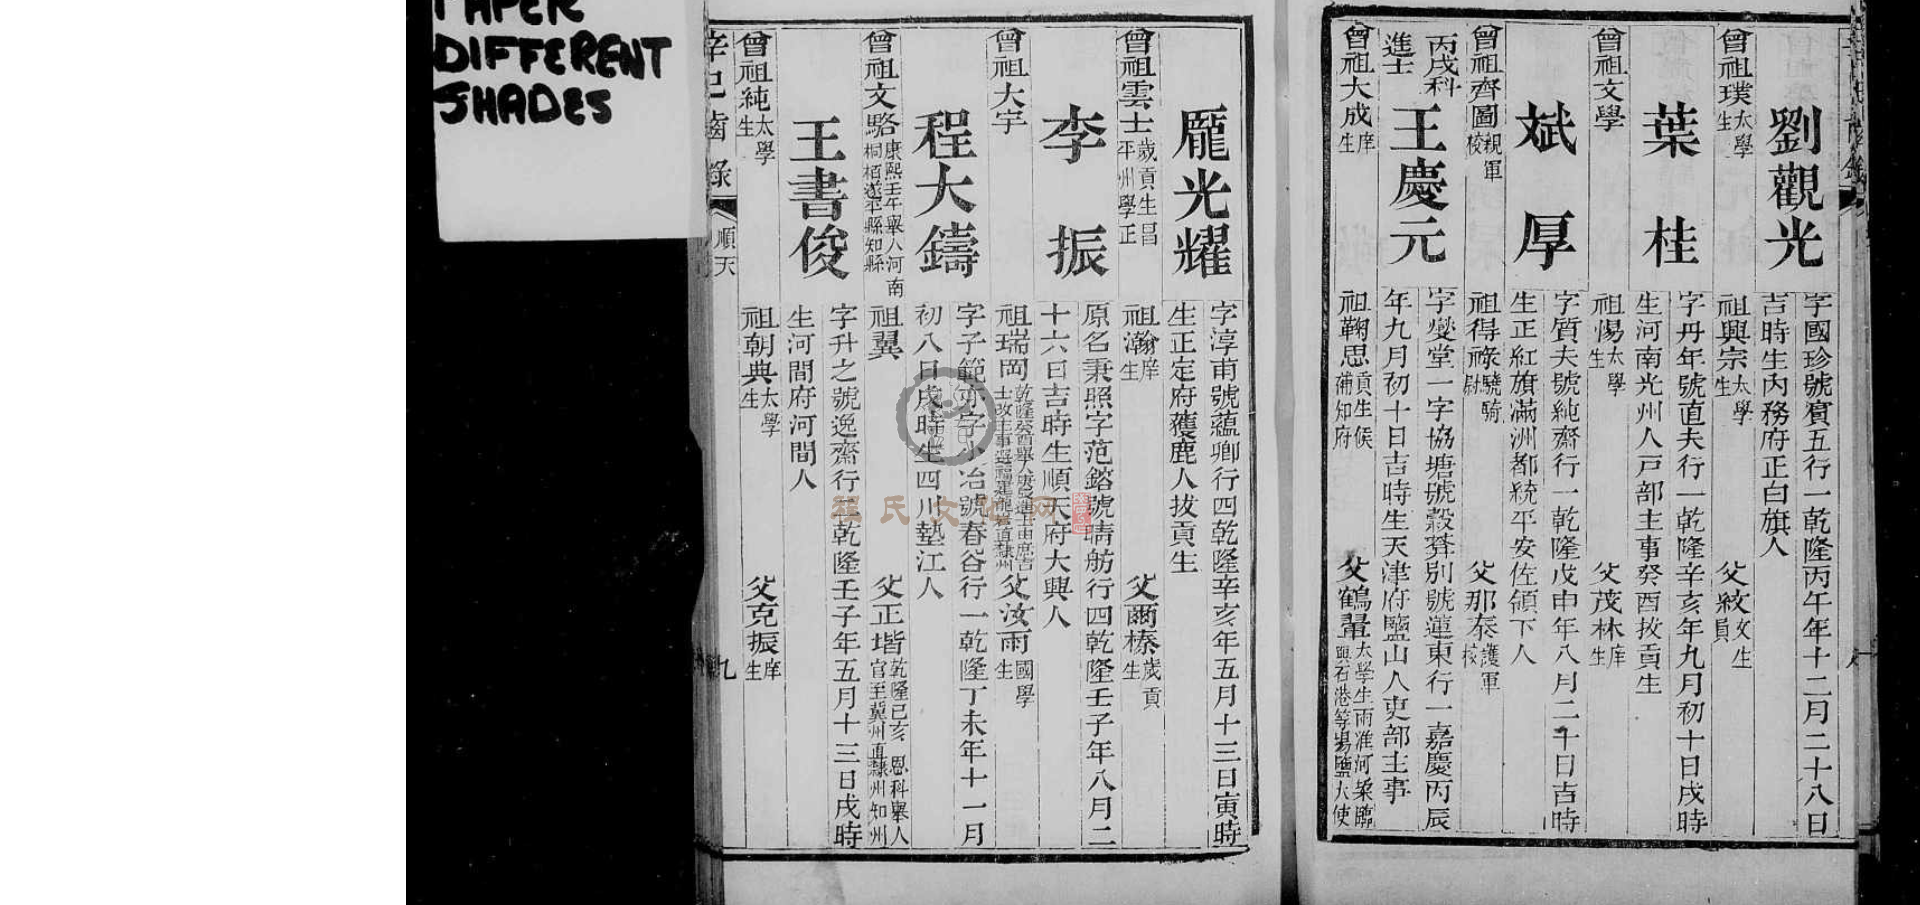 PAPER
DIFFERENT
SHADES
劉觀光
字國珍號賓五行一乾隆丙午年十二月二十八日
吉時生內務府正白旗人
曾祖璞太學生
祖興宗太學生
父紋文生員
葉桂
字丹年號直夫行一乾隆辛亥年九月初十日戌時
生河南光州人戶部主事癸酉拔貢生
曾祖文學
祖惕太學生
父茂林庠生
斌厚
字質夫號純齋行一乾隆戊申年八月二十日吉時
生正紅旗滿洲都統平安佐領下人
曾祖齊圖親軍校
祖得祿驍騎尉
父那泰護軍校
丙戌科進士
王慶元
字燮堂一字協塘號穀莽別號蓮東行一嘉慶丙辰
年九月初十日吉時生天津府鹽山人吏部主事
曾祖大成庠生
祖鞠思貢生候補知府
父鶴翬太學生兩淮河築臨興石港等場鹽大使
龐光燿
字淳甫號蘊卿行四乾隆辛亥年五月十三日寅時
生正定府獲鹿人拔貢生
曾祖雲士歲貢生昌平州學正
祖瀚庠生
父爾榛歲貢生
李振
原名秉照字范鎔號晴舫行四乾隆壬子年八月二
十六日吉時生順天府大興人
曾祖大宇
祖瑞岡乾隆癸酉舉人庚辰進士由庶吉士改主事選福建龍巖直隸州
父汝雨國學生
程大鑄
字子範亦字小冶號春谷行一乾隆丁未年十一月
初八日戌時生四川墊江人
曾祖文略康熙壬午舉人河南桐栢遂平縣知縣
祖翼
父正堦乾隆己亥恩科舉人官至冀州直隸州知州
王書俊
字升之號逸齋行二乾隆壬子年五月十三日戌時
生河間府河間人
曾祖純太學生
祖朝典太學生
父克振庠生
辛巳齒錄
順天
九
程氏文化网